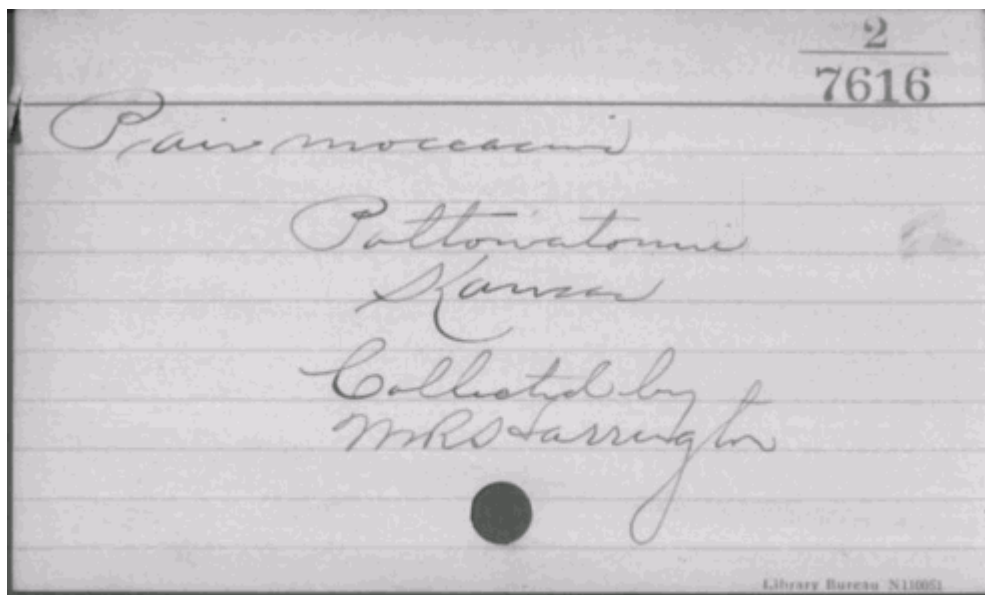 2
7616
Pair moccasins
Pottowatomie
Kansas
Collected by
MR Harrington
Library Bureau N110051